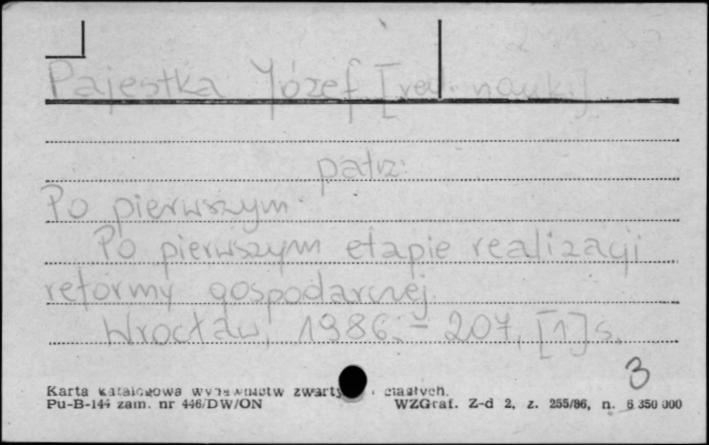 Pajestka Józef [red. nauk.]
patrz:
Po pierwszym
Po pierwszym etapie realizacji
reformy gospodarczej.
Wrocław, 1986. – 207, [1] s.
3
Karta katalogowa wydawnictw zwartych i ciągłych.
Pu-B-144 zam. nr 446/DW/ON WZGraf. Z-d 2, z. 255/86, n. 6 350 000